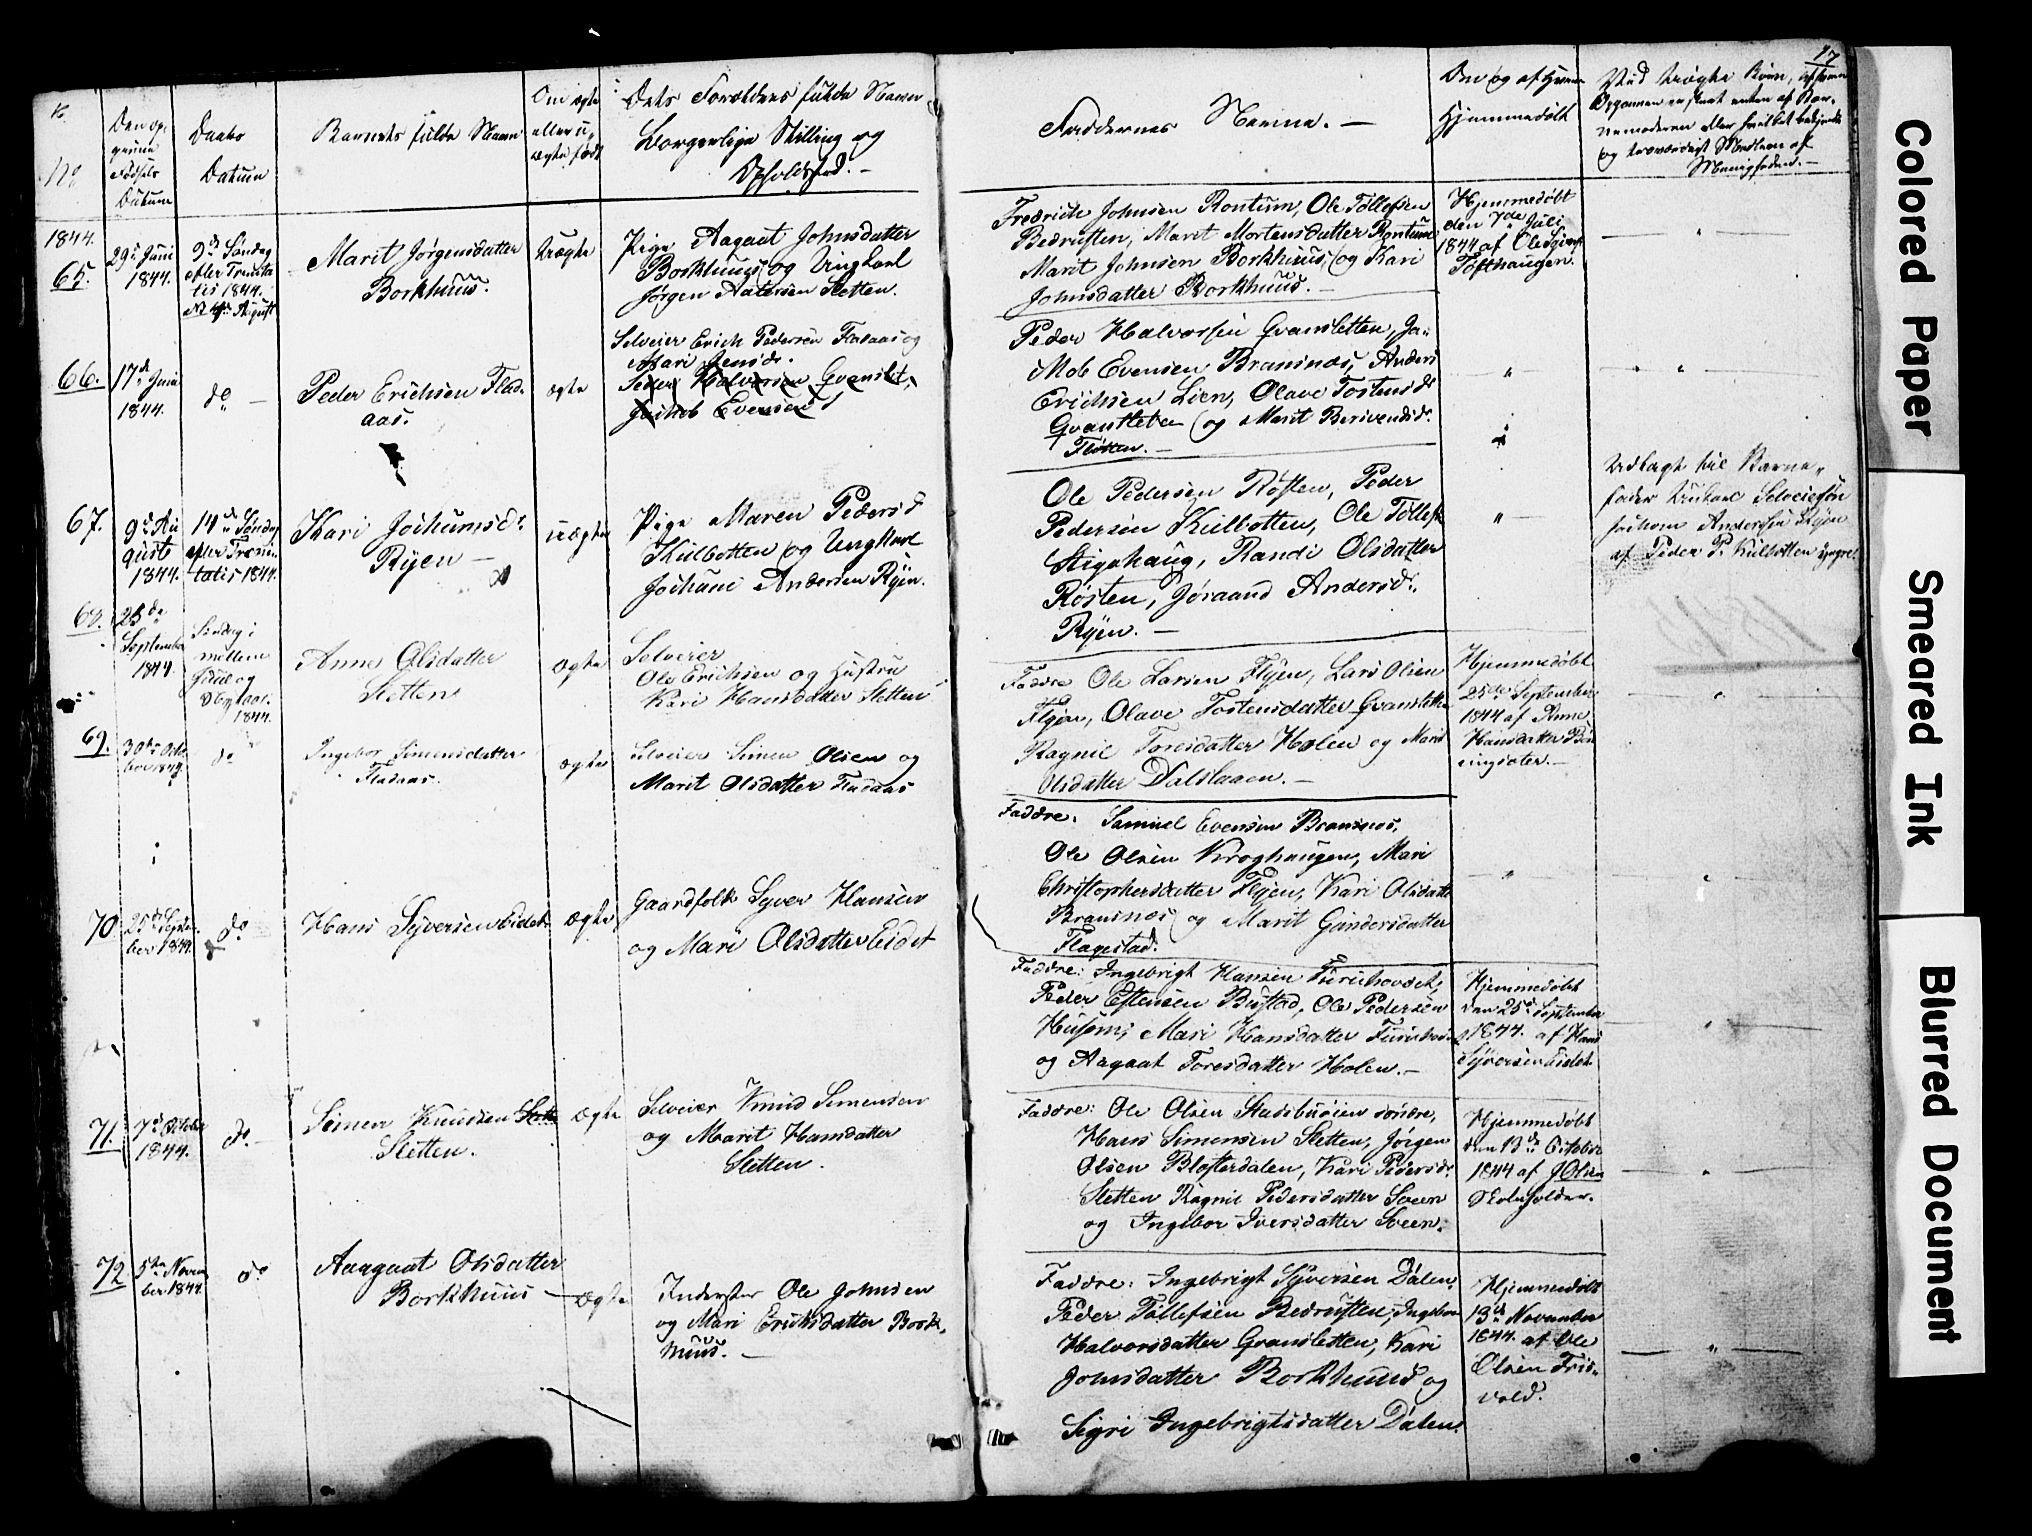 17
No
Den op-
Daabs
Datum
Barnets fulde Navn
Om ægte
eller u-
ægte født
Dets Forældres fulde Navne
Borgerlige Stilling og
Opholdsted. -
Faddernes Navne. -
Om og af hvem
Hjemmedøbt
1844.
65.
29de Juni
1844.
9de Søndag
efter Trinita
tis 1844.
August
Marit Jørgensdatter
Borkhuus.
Uægte
Pige Aagaat Johnsdatter
Borkhuus og Ungkarl
Jørgen Sletten.
Fredrich Johnsen Rontum, Ole Tollefsen
Marit Mortensdatter Rontum
Marit Johnsen Borkhuus, og Kari
Johnsdatter Borkhuus. -
Hjemmedøbt
den 7de Juli
1844 af Ole
Tofthaugen.
66.
17de Juni
1844.
do
Peder Erichsen Flad-
aas.
ægte
Selveier Erich Pedersen Fladaas og
Mari Jensd.
Peder Halvorsen
Jachob Evensen
Peder Halvorsen Gvansletten, Ja-
kob Evensen Bransnæs, Anders
Erichsen Lien, Olave Tostensd.
og Marit
67.
9de Au
gust
1844.
14de Søndag
efter Trini-
tatis 1844.
Kari Jochumsd.
Ryen -
uægte
Pige Maren Pedersd
Kulbotten og Ungkarl
Jochum Andersen Ryen.
Ole Pedersen Røsten, Peder
Pedersen Kulbotten, Ole Tollefs.
Stighaug, Randi Olsdatter
Røsten, Jøraand Andersd.
Ryen. -
Udlagt til Barne-
fader Selveiersøn
Jochum Andersen Ryen
af Peder P. Kulbotten
68.
25de
September
1844.
Søndag i
mellem
Juul og
Nytaar
1844.
Anne Olsdatter
Sletten
ægte
Selveier
Ole Erichsen og Hustru
Kari Hansdatter Sletten
Faddre Ole Larsen Flyen, Lars Olsen
Flyen, Olave Tostensdatter Gvansletten
Ragnil Toresdatter Holen og Marit
Olsdatter Dalslaaen. -
Hjemmedøbt
25de September
1844 af Anne
Hansdatter
69.
30te Octo
ber 1844
do
Ingebor Simensdatter
Fladaas.
ægte
Selveier Simen Olsen og
Marit Olsdatter Fladaas
Faddre: Samuel Evensen Bransnæs,
Ole Olsen Kroghaugen, Mari
Christophersdatter Flyen, Kari Olsdatter
Bransnæs og Marit Gundersdatter
Flagestad.
70
25de Septem
ber 1844.
do
Hans Syversen Eidet
ægte
Gaardfolk Syver Hansen
og Mari Olsdatter Eidet
Faddre: Ingebrigt Hansen Furuhovdet,
Peder Estensen Bustad, Ole Pedersen
Husom, Mari Hansdatter Furuhov
og Aagaat Toresdatter Holen. -
Hjemmedøbt
den 25de September
1844. af Hans
Syversen Eidet.
71.
7de October
1844.
do. -
Simen Knudsen
Sletten.
ægte
Selveier Knud Simensen
og Marit Hansdatter
Sletten.
Faddre: Ole Olsen Stadsbuøien søndre,
Hans Simensen Sletten, Jørgen
Olsen Blesterdalen, Kari Pedersd.
Sletten Ragnil Pedersdatter Sveen
og Ingebor Iversdatter Sveen.
Hjemmedøbt
den 13de October
1844 af J Olsen
Skoleholder.
72
5te Novem
ber 1844
do
Aagaat Olsdatter
Borkhuus
ægte
Inderster Ole Johnsen
og Mari Eriksdatter Bork-
huus. -
Faddre: Ingebrigt Syversen Dalen,
Peder Tollefsen Ingebor
Halvorsdatter Gransletten, Kari
Johnsdatter Borkhuus og
Sigri Ingebrigtsdatter Dalen.
Hjemmedøbt
13de November
1844. af Ole
Olsen Fris-
vold.
Colored Paper
Smeared Ink
Blurred Document